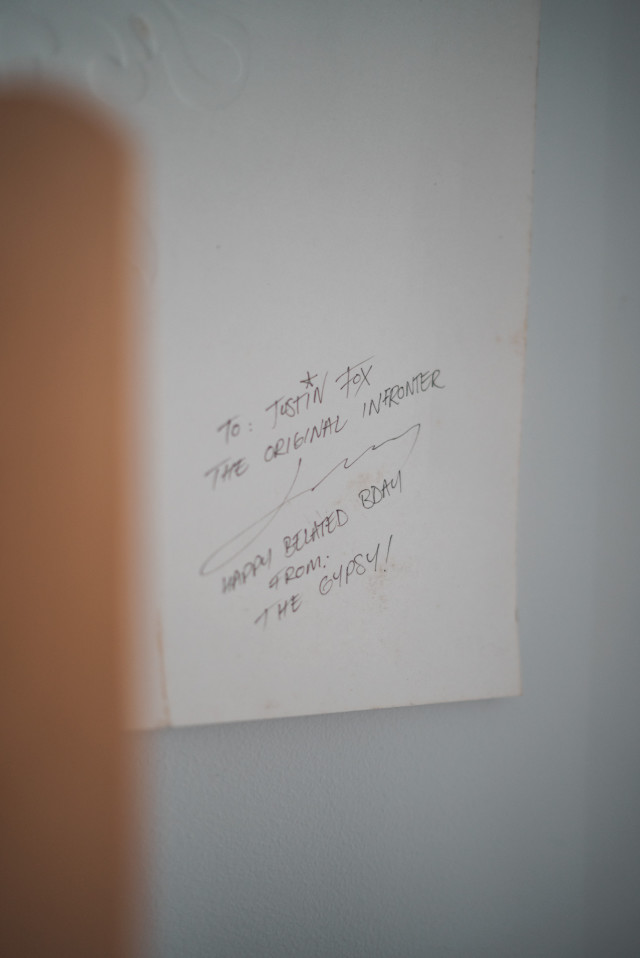 TO: JUSTIN FOX
THE ORIGINAL INFRONTER
HAPPY BELATED BDAY
FROM:
THE GYPSY!